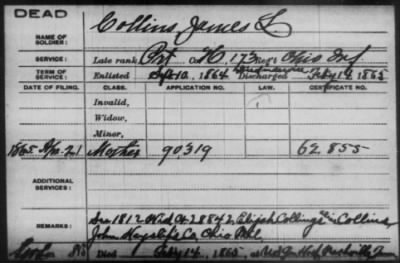 DEAD
NAME OF SOLDIER: Collins James L.
SERVICE: Late rank, Pvt Co. H, 173 Reg't Ohio Inf
TERM OF SERVICE: Enlisted Sept 10, 1864 Discharged Feb'y 14, 1865
DATE OF FILING. CLASS. APPLICATION NO. LAW. CERTIFICATE NO.
Invalid,
Widow,
Minor,
1865 Mother 90319 62.855
ADDITIONAL SERVICES:
REMARKS: See 1812 Wid. Ct 28842, Elijah Collings or Collins,
John Co. Ohio Mil.
Died Feb'y 14, 1865, at Hosp Nashville